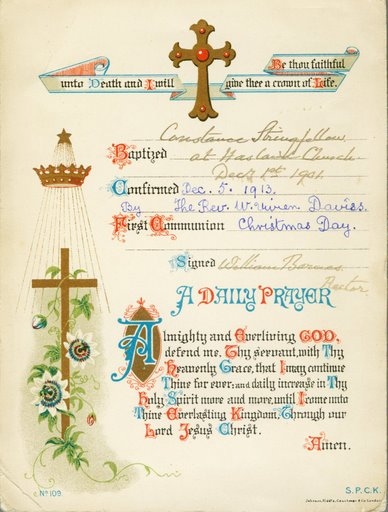 Be thou faithful
unto Death and I will give thee a crown of Life.
Constance Stringfellow
Baptized at Hasland Church
Dec 1st 1901.
Confirmed Dec. 5. 1913.
By The Rev. W. Davies.
First Communion Christmas Day.
Signed William Barnes
Rector
A DAILY PRAYER
Almighty and Everliving GOD,
defend me, Thy servant, with Thy
Heavenly Grace, that I may continue
Thine for ever: and daily increase in Thy
Holy Spirit more and more, until I come unto
Thine Everlasting Kingdom, Through our
Lord Jesus Christ.
Amen.
C. No 109.
S.P.C.K.